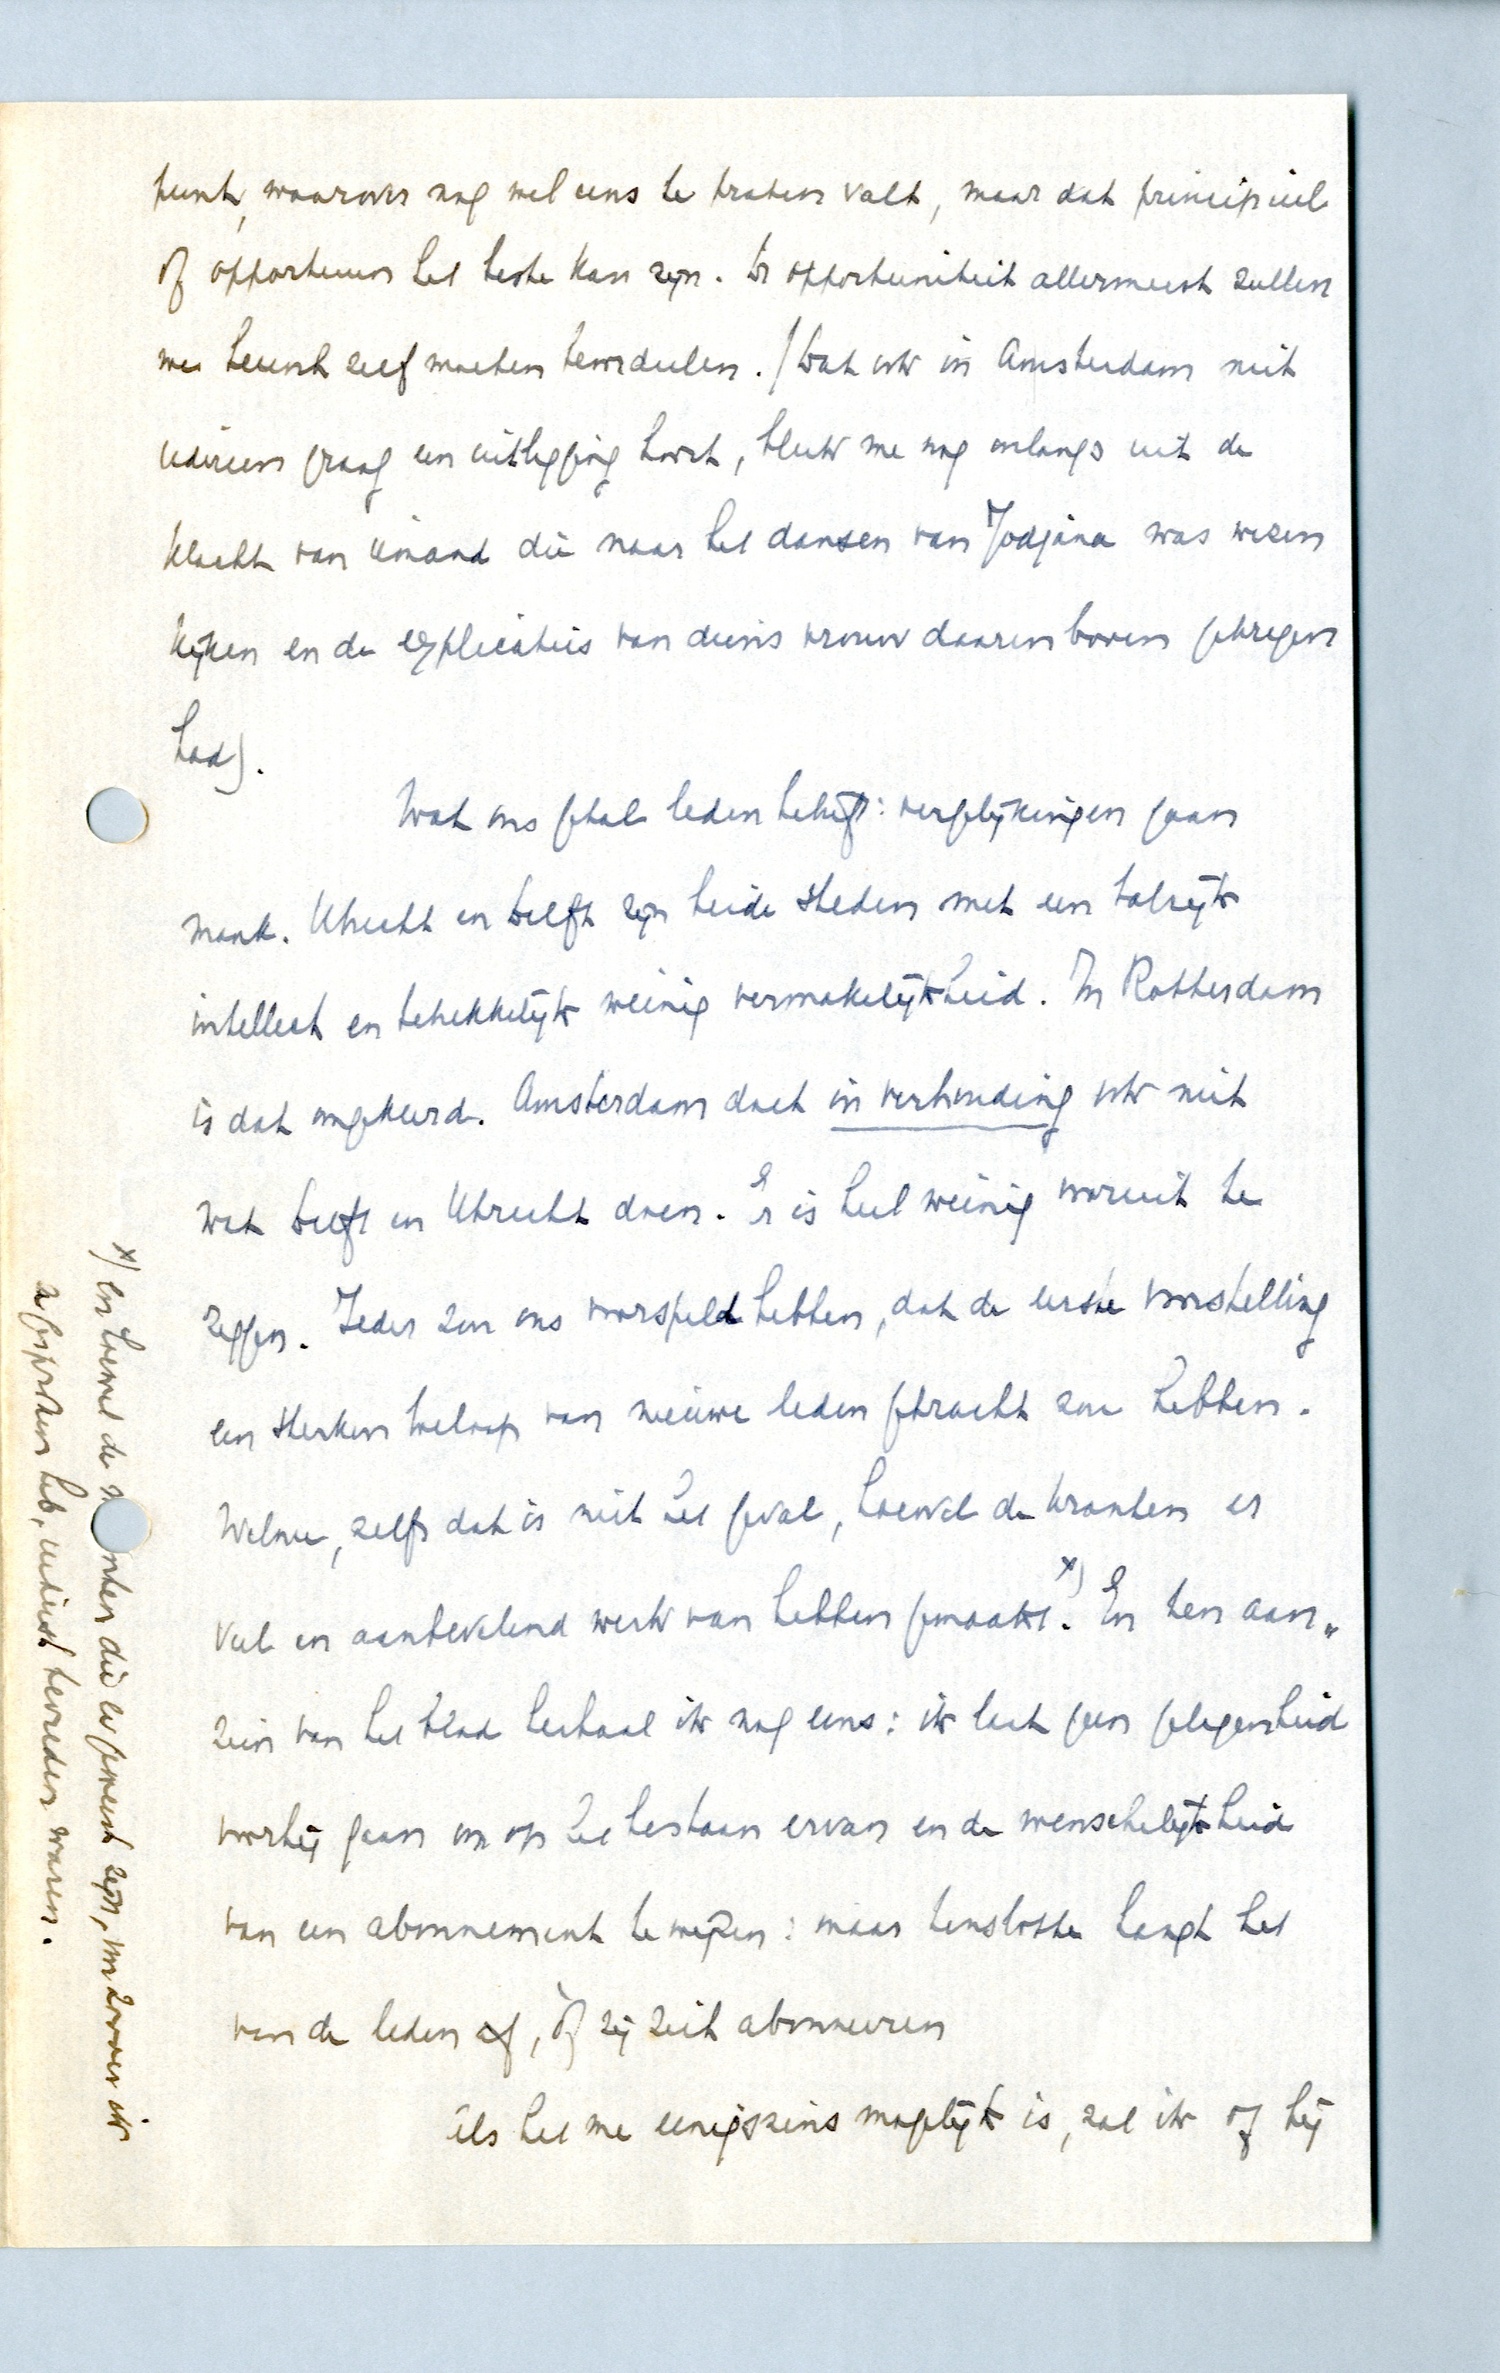 punt, waarover nog wel eens te praten valt, maar dat principieel
of opportuun het beste kan zijn. De opportuniteit allermeest zullen
we heusch zelf moeten beoordeelen. (Dat ook in Amsterdam niet
iedereen graag een uitlegging hoort, bleek me nog onlangs uit de
klacht van iemand die naar het dansen van Jodjana was wezen
kijken en de explicaties van diens vrouw daarenboven gekregen
had).
Wat ons getal leden betreft: vergelijkingen gaan
mank. Utrecht en Delft zijn beide steden met een talrijk
intellect en betrekkelijk weinig vermakelijkheid. In Rotterdam
is dat omgekeerd. Amsterdam doet in verhouding ook niet
wat Delft en Utrecht doen. Er is heel weinig vooruit te
zeggen. Ieder zou ons voorspeld hebben, dat de eerste voorstelling
een sterken toeloop van nieuwe leden gebracht zou hebben.
Welnu, zelfs dat is niet het geval, hoewel de kranten er
veel en aanbevelend werk van hebben gemaakt.x) En ten aan„
zien van het blad herhaal ik nog eens: ik laat geen gelegenheid
voorbij gaan om op het bestaan ervan en de wenschelijkheid
van een abonnement te wijzen: maar tenslotte hangt het
van de leden af, òf zij zich abonneeren
Als het me eenigszins mogelijk is, zal ik of hij
x) En hoewel de m nschen die er geweest zijn, voor zoover ik
ze gesproken heb, uiterst tevreden waren.